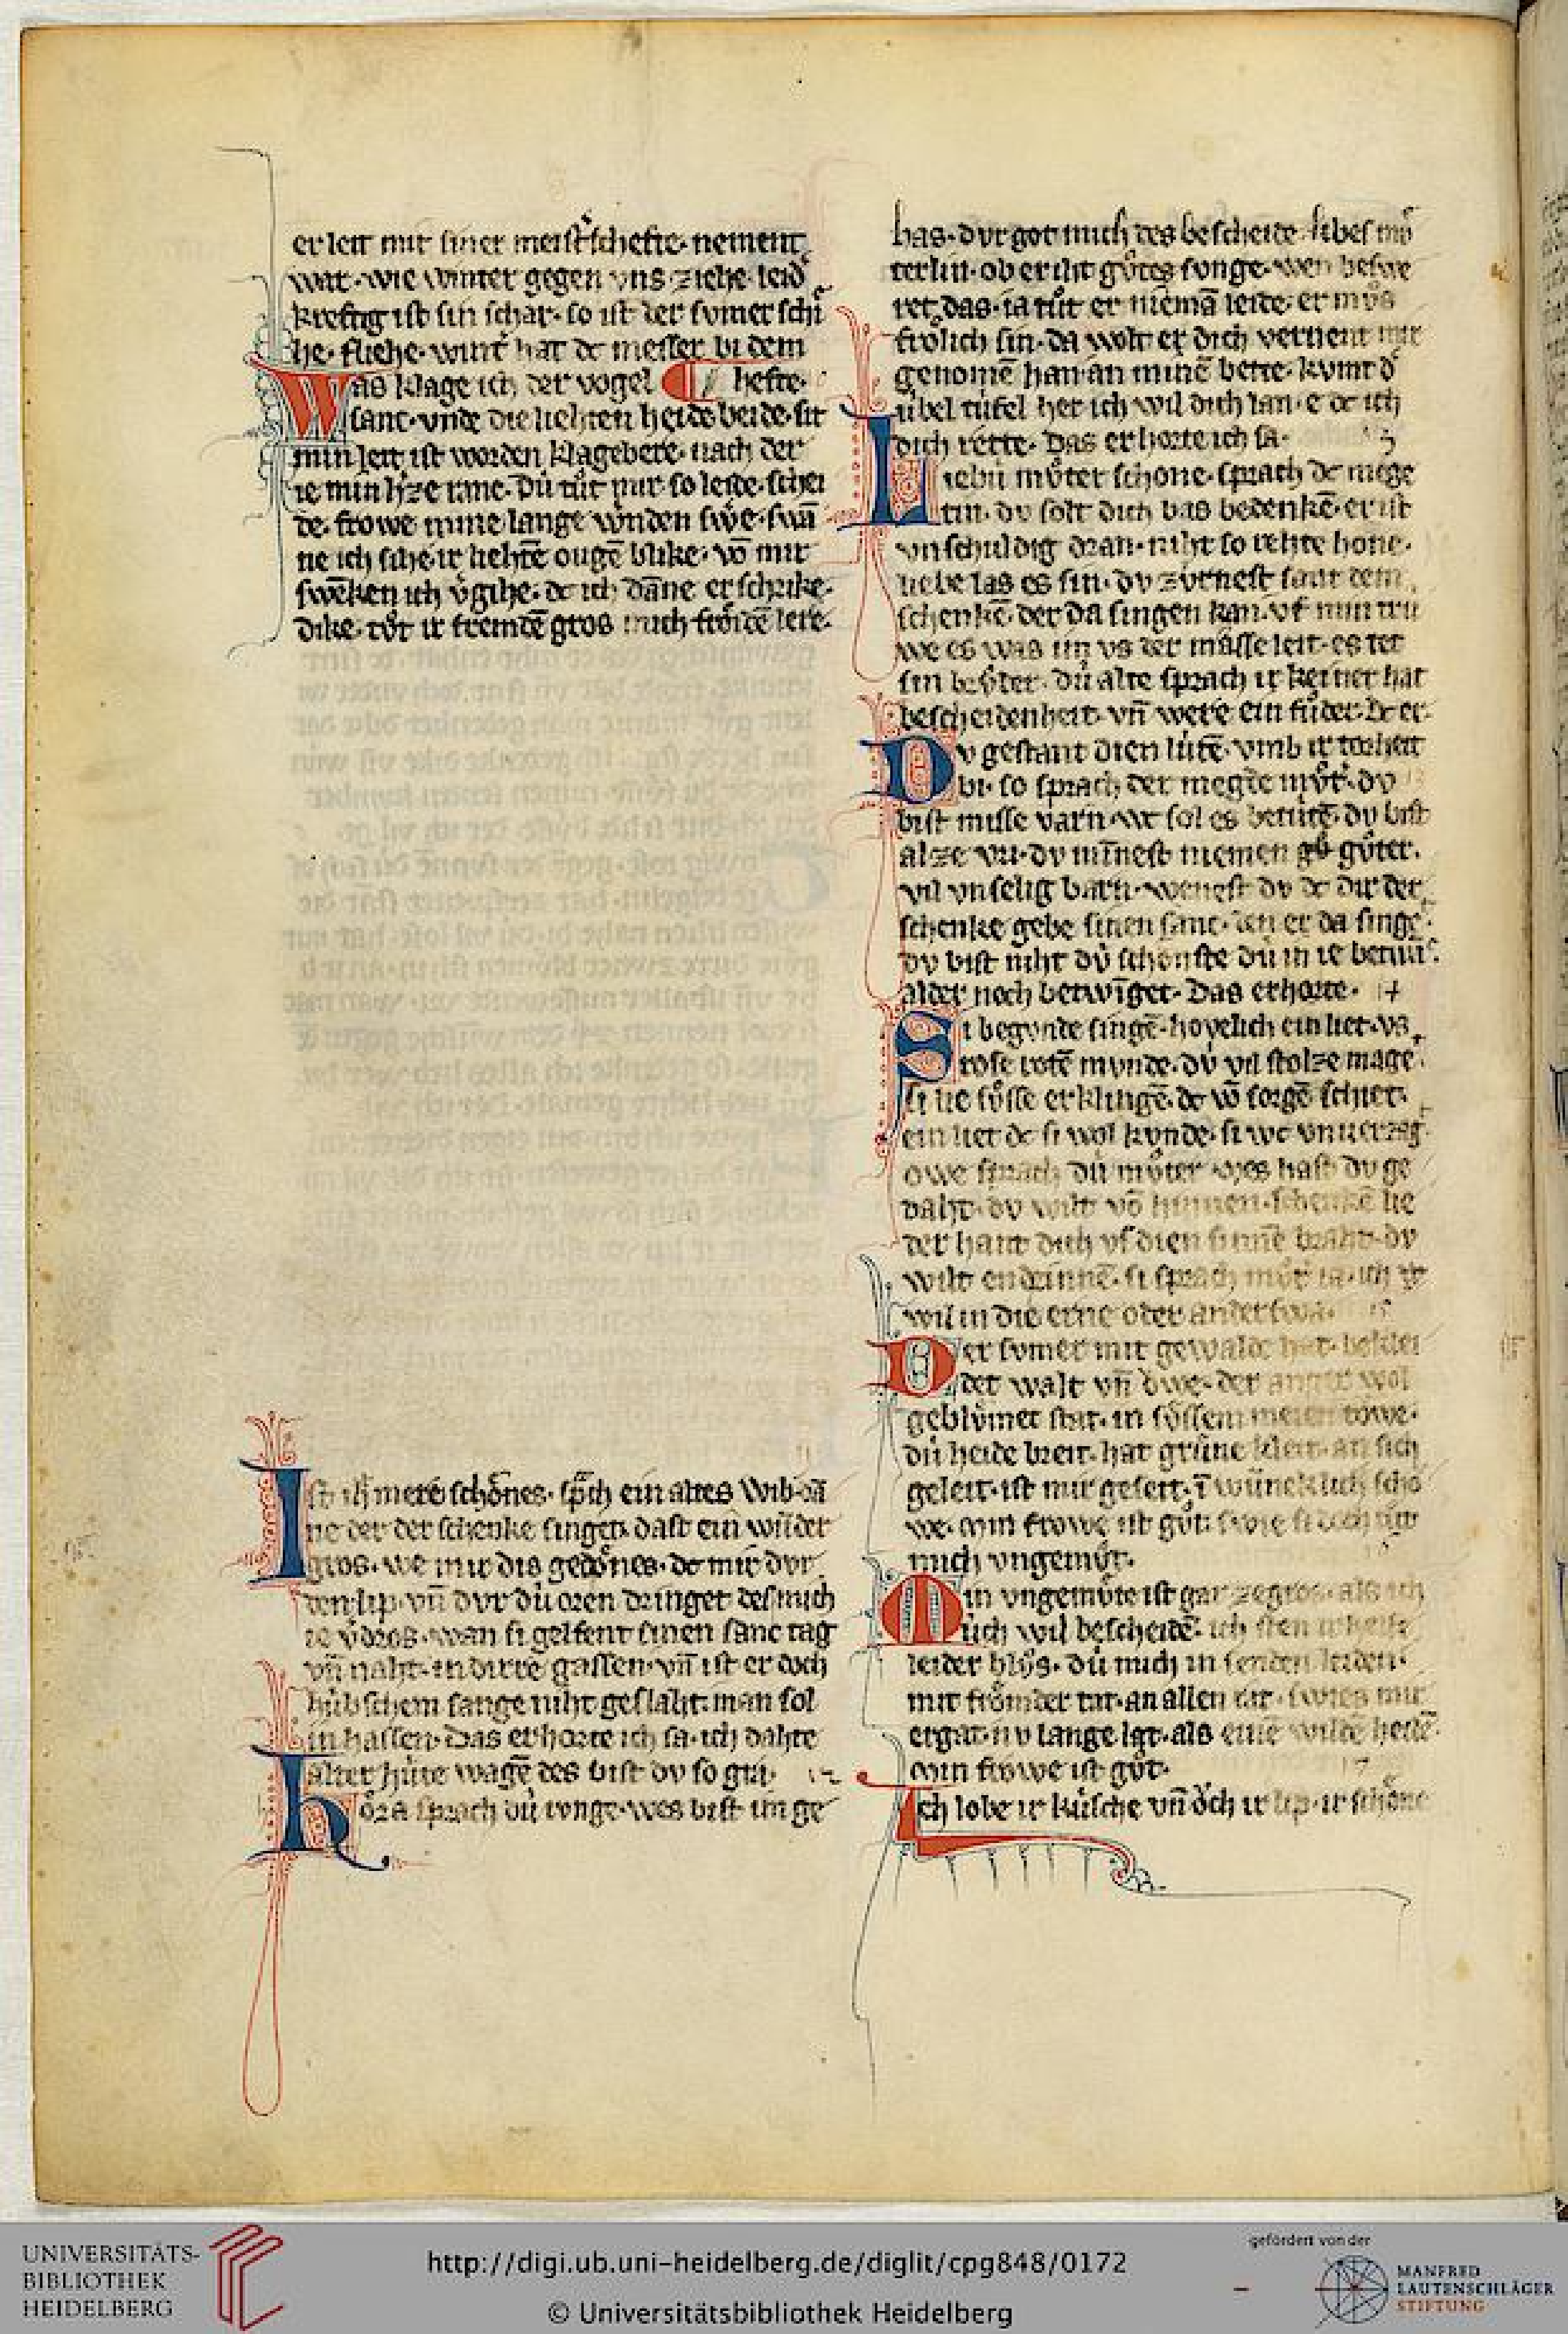 er leit mit siner meist̾schefte. nement
war. wie winter gegen vns ziehe. leid̾
kreftig ist sin schar. so ist der svmer schi
he. fliehe. wint̾ hat dc messer bi dem
was klage ich der vogel ¶ hefte.
sant. vnde die liehten heide beide. sit
min leit ist worden klagebere. nach der
ie min h̾ze rane. Dú tůt mir so leide. schei
de. frowe mine lange wnden swe. swā
ne ich sihe. ir liehtē ougē blike. vō mir
swēken ich v̾gihe. dc ich dāne er schrike.
dike. tůt ir fremdē gros mich frōidē lere.
Ist ih̄ mere schōnes. sp̾ch ein altes wib. dā
ne der der schenke singet. dast ein wūder
gros. we mir dis gedōnes. dc mir dvr
den lip. vn̄ dvr dú oren dringet des mich
ie v̾dros. wan si gelfent sinen sanc tag
vn̄ naht. in dirre gassen. vn̄ ist er doch
húbschem sange niht geslaht. man sol
in hassen. Das erhorte ich sa. ich dahte
alter húte wagē des bist dv so gra.
hōra sprach dú ivnge. wes bist im ge
has. dvr got mich des bescheide. libes mů
terlin. ob er iht gůtes singe. wen beswe
ret das. ia tůt er niemā leide. er mvs
frōlich sin. da wolt er dich vernent mir
genomē han. an minē bette. kvmt d̾
úbel túfel her ich wil dich lan. e dc ich
dich rette. Das erhorte ich sa.
Liebú můter schone. sprach dc mege
tin. dv solt dich bas bedenkē. er ist
vnschuldig dran. niht so rehte hone.
liebe las es sin. dv zúrnest sant dem
schenkē. der da singen kan. vf min trú
we es was im vs der māsse leit. es tet
sin brůder. dú alte sprach ir keiner hat
bescheidenheit. vn̄ were ein fůder. dc er
Dv gestant dien lútē. vmb ir torheit
bi. so sprach der megde můt̾. dv
bist misse varn. wc sol es betútē. dv bist
alze vri. dv mīnest niemen gů gůter.
vil vnselig barn. wenest dv dc dir der
schenke gebe sinen sanc. den er da singe.
dv bist niht dú schōnste dú in ie betwā.
alder noch betwīget. Das erhorte.
Si begvnde singē. hovelich ein liet. vs
rose rotē mvnde. dú vil stolze mage.
si lie sůsse erklingē. dc vō sorgē schiet.
ein liet dc si wol kvnde. si wc vnverzag.
owe sprach dú můter wes hast dv ge
daht. dv wilt vō hinnen. schenkē lie
der hant dich vs dien sinnē braht. dv
wilt endrinnē. si sprach můt̾ ia. ich
wil in die erne oder anderswa.
Der svmer mit gewalde hat. beklei
det walt vn̄ owe. der anger wol
geblůmet stat. in sůssem meien towe.
dú heide breit. hat grůne kleit. an sich
geleit. ist mir geseit. ī wúneklich scho
we. min frowe ist gůt. swie si doch tůt
mich vngemůt.
Min vngemůte ist gar zegros. als ich
úch wil bescheidē. ich sten
leider blōs. dú mich in senden leiden.
mit frōmder tat. an allen rat. swies mir
ergat. nv lange lat. als einē wildē heidē.
min frowe ist gůt.
Ich lobe ir kúsche vn̄ ōch ir lip. ir schōne
UNIVERSITÄTS-
BIBLIOTHEK
HEIDELBERG
http://digi.ub.uni-heidelberg.de/diglit/cpg848/0172
© Universitätsbibliothek Heidelberg
gefördert von der
MANFRED
LAUTENSCHLÄGER
STIFTUNG